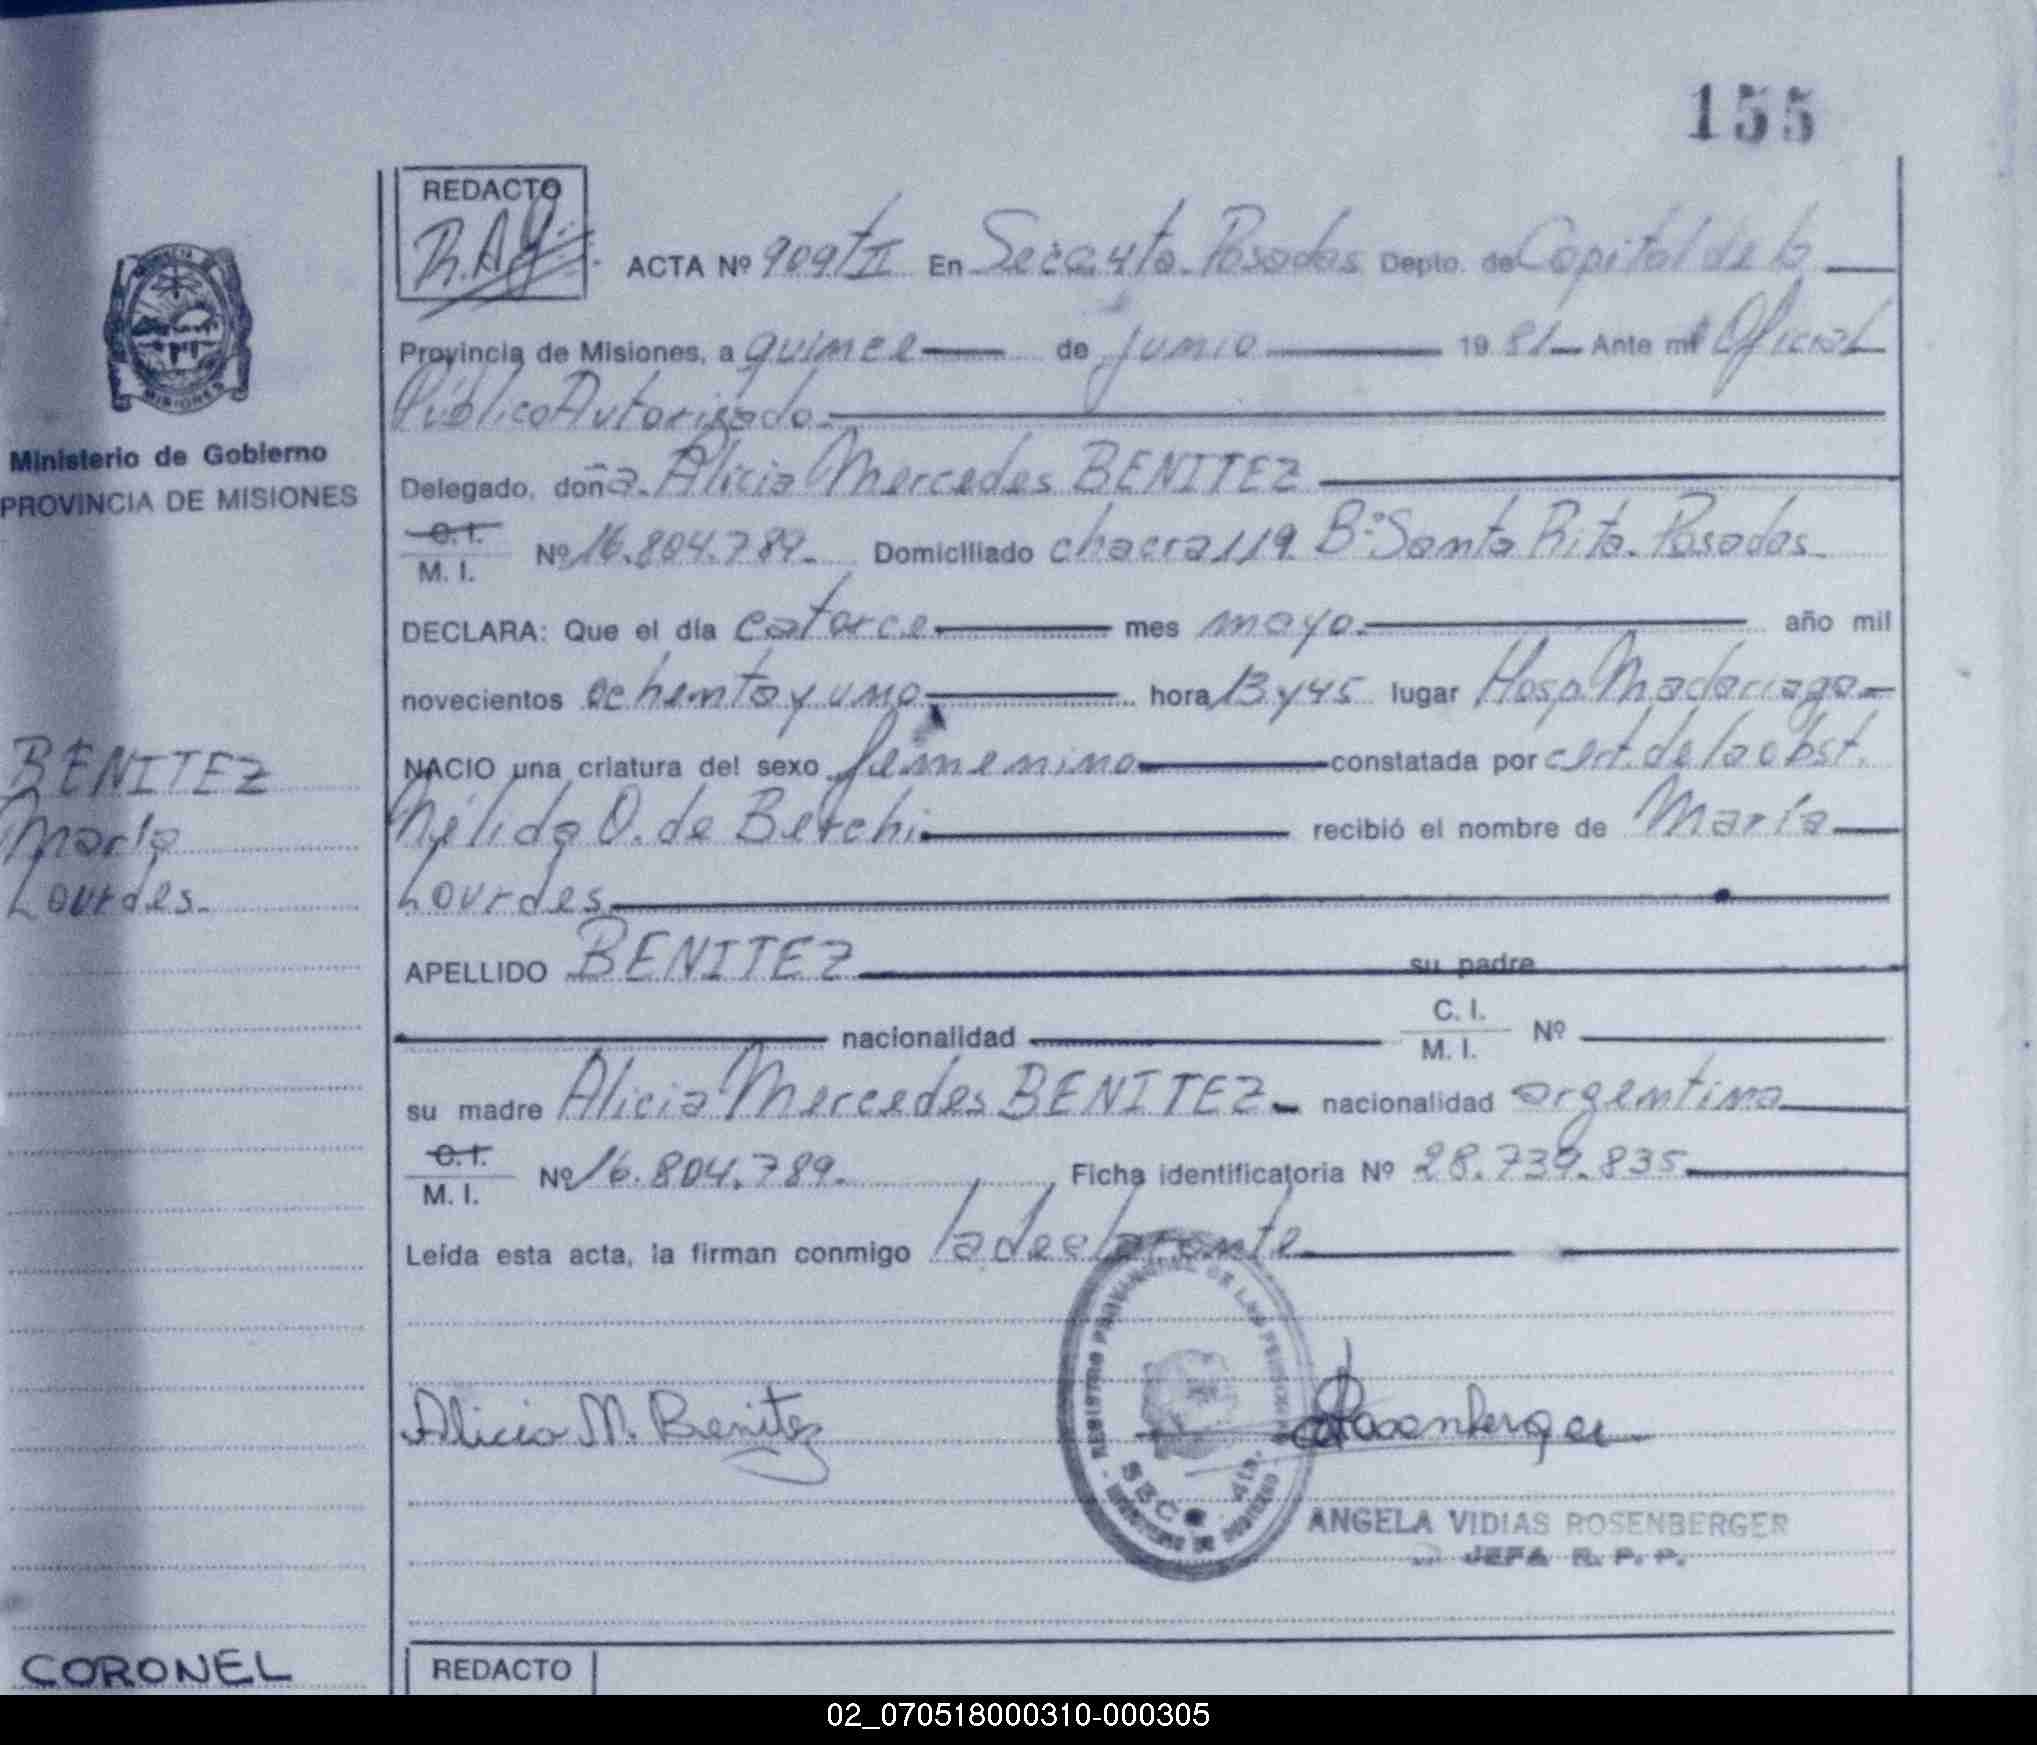 155
REDACTO
ACTA Nº 909/II En Secc. 4ta. Posadas Depto. de Capital de la
Provincia de Misiones, a quince de junio 1981 Ante mí Oficial
Público Autorizado.
Ministerio de Gobierno
PROVINCIA DE MISIONES
Delegado, doña. Alicia Mercedes BENITEZ
C. I.
M. I. Nº 16.804.789. Domiciliado chacra 119. Bº Santa Rita. Posadas.
DECLARA: Que el día catorce mes mayo. año mil
novecientos ochenta y uno hora 13 y 45 lugar Hosp. Madariaga
NACIO una criatura del sexo femenino constatada por cert. de la obst.
Nélida O. de Berchi recibió el nombre de María
Lourdes.
BENITEZ
María
Lourdes.
APELLIDO BENITEZ su padre
nacionalidad C. I.
M. I. Nº
su madre Alicia Mercedes BENITEZ nacionalidad argentina
C. I.
M. I. Nº 16.804.789. Ficha identificatoria Nº 28.739.835.
Leída esta acta, la firman conmigo la declarante
REGISTRO PROVINCIAL DE LAS PERSONAS
SECC. 4ta.
MINISTERIO DE GOBIERNO
Alicia M. Benitez
Rosenberger
ANGELA VIDIAS ROSENBERGER
JEFA R. P. P.
CORONEL
REDACTO
02_070518000310-000305